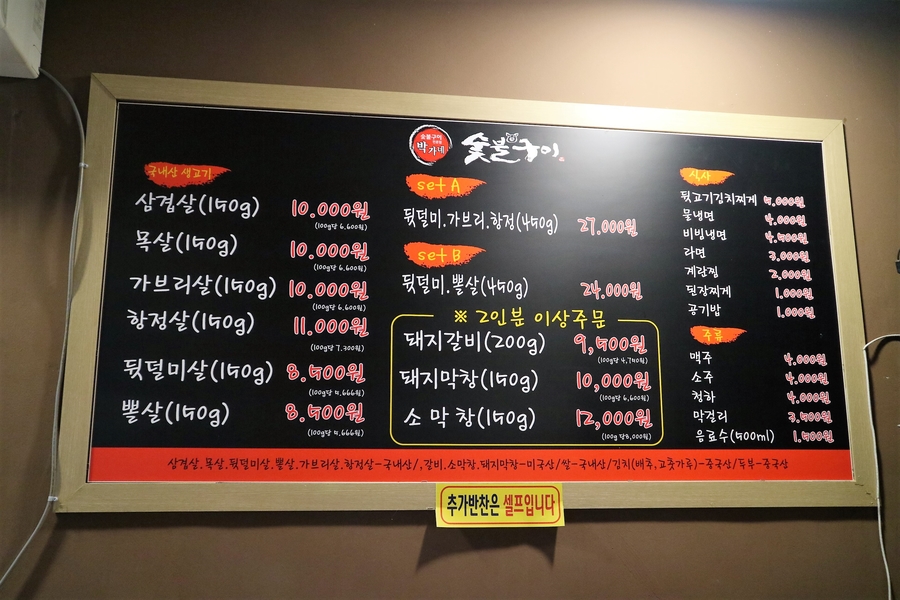 숯불구이
박가네
숯불구이
국내산 생고기
삼겹살(150g) 10,000원
(100g당 6,600원)
목살(150g) 10,000원
(100g당 6,600원)
가브리살(150g) 10,000원
(100g당 6,600원)
항정살(150g) 11,000원
(100g당 7,300원)
뒷덜미살(150g) 8,500원
(100g당 5,666원)
뽈살(150g) 8,500원
(100g당 5,666원)
set A
뒷덜미.가브리.항정(450g) 27,000원
set B
뒷덜미.뽈살(450g) 24,000원
※ 2인분 이상주문
돼지갈비(200g) 9,500원
(100g당 4,750원)
돼지막창(150g) 10,000원
(100g당 6,600원)
소 막창(150g) 12,000원
(100g당 8,000원)
식사
뒷고기김치찌게 5,000원
물냉면 4,000원
비빔냉면 4,500원
라면 3,000원
계란찜 2,000원
된장찌게 1,000원
공기밥 1,000원
주류
맥주 4,000원
소주 4,000원
청하 4,000원
막걸리 3,500원
음료수(500ml) 1,500원
삼겹살.목살.뒷덜미살.뽈살.가브리살.항정살-국내산/,갈비.소막창.돼지막창-미국산/쌀-국내산/김치(배추,고춧가루)-중국산/두부-중국산
추가반찬은 셀프입니다